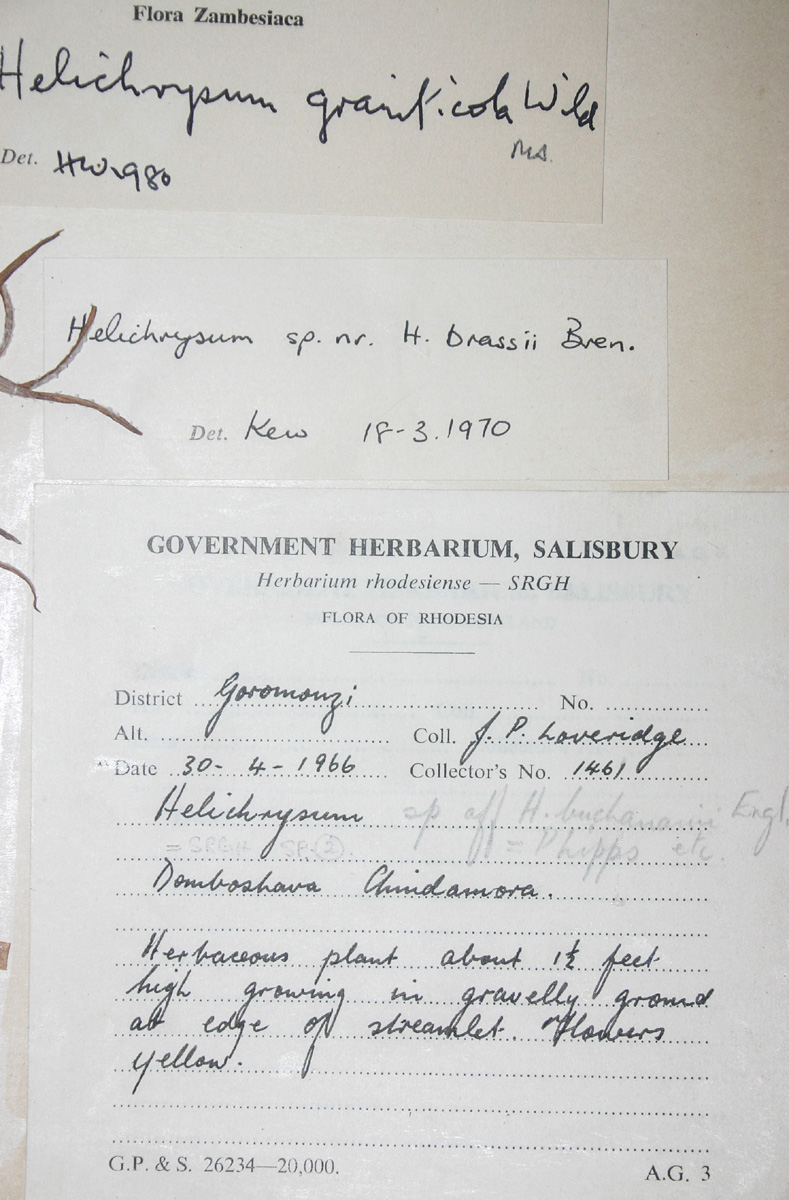 Flora Zambesiaca
Helichrysum graniticola Wild
Ms.
Det. HW 1980
Helichrysum sp. nr. H. brassii Bren.
Det. Kew 18-3.1970
GOVERNMENT HERBARIUM, SALISBURY
Herbarium rhodesiense — SRGH
FLORA OF RHODESIA
District Goromonzi No.
Alt. Coll. J. P. Loveridge
Date 30-4-1966 Collector's No. 1461
Helichrysum sp aff H. buchananii Engl.
= SRGH SP. (2). = Phipps etc.
Domboshava Chindamora.
Herbaceous plant about 1½ feet
high growing in gravelly ground
at edge of streamlet. Flowers
yellow.
G.P. & S. 26234—20,000. A.G. 3